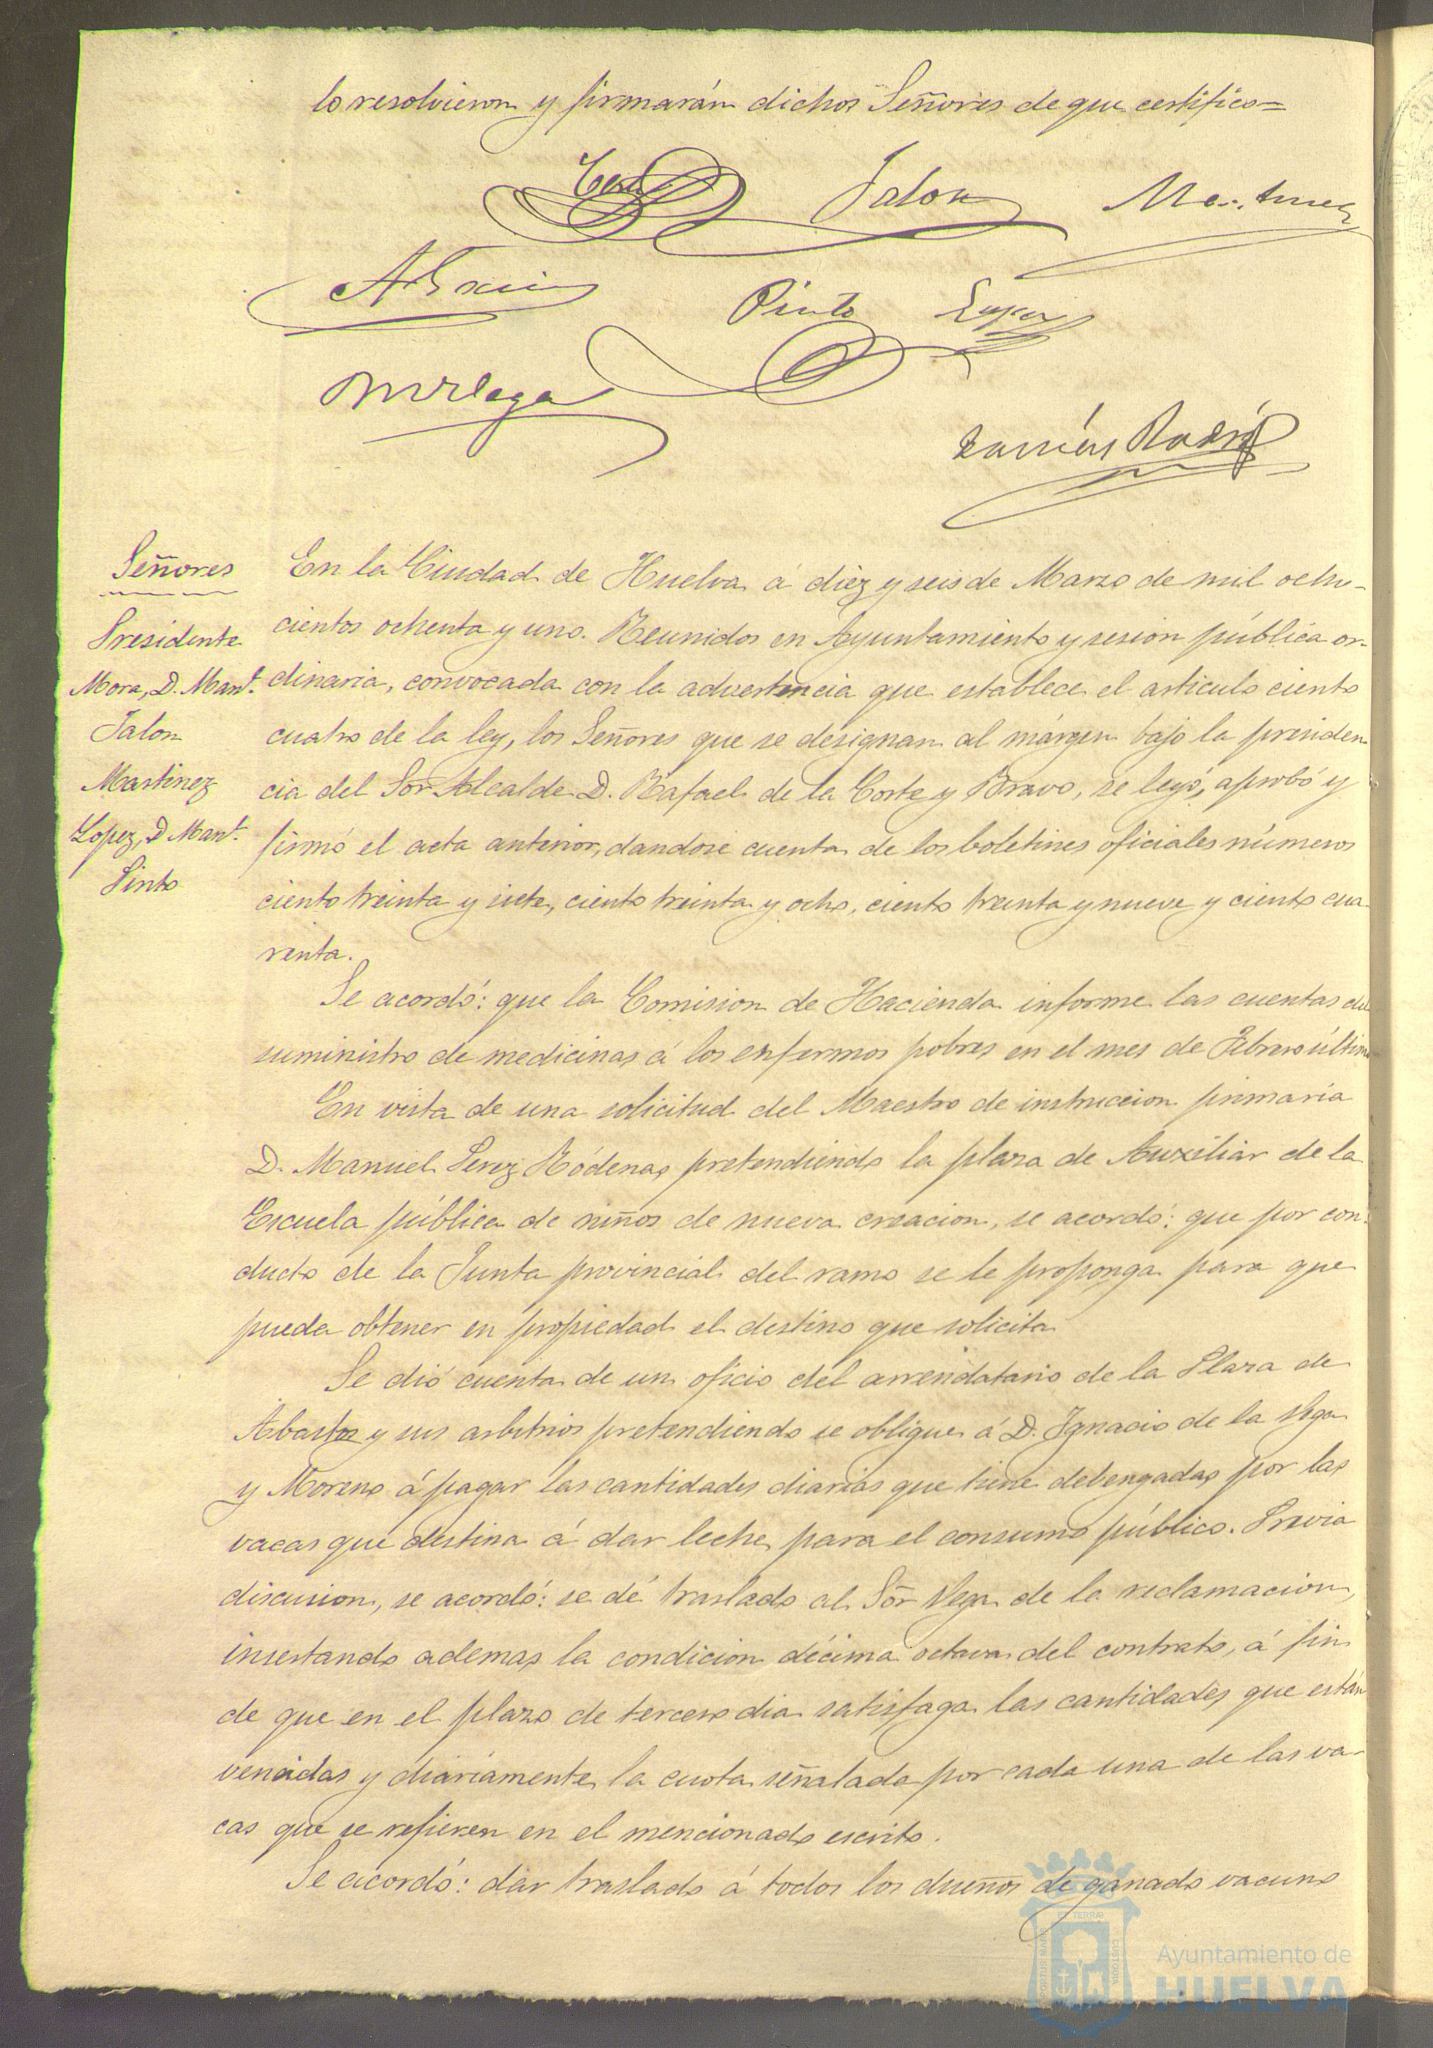 lo resolvieron y firmarán dichos Señores de que certifico=
Jalon
Martinez
Pinto
Lopez
Señores
Presidente
Mora, D. Manl.
Jalon
Martinez
Lopez, D Manl.
Pinto
En la Ciudad de Huelva á diez y seis de Marzo de mil ocho-
cientos ochenta y uno. Reunidos en Ayuntamiento y sesion pública or-
dinaria, convocada con la advertencia que establece el articulo ciento
cuatro de la ley, los Señores que se designan al márgen bajo la presiden
cia del Sor Alcalde D. Rafael de la Corte y Bravo, se leyó, aprobó y
firmó el acta anterior, dandose cuenta de los boletines oficiales números
ciento treinta y siete, ciento treinta y ocho, ciento treinta y nueve y ciento cua
renta.
Se acordó: que la Comision de Hacienda informe las cuentas del
suministro de medicinas á los enfermos pobres en el mes de Febrero último
En vista de una solicitud del Maestro de instruccion primaria
D. Manuel Perez Ródenas pretendiendo la plaza de Auxiliar de la
Escuela pública de niños de nueva creacion, se acordó: que por con-
ducto de la Junta provincial del ramo se le proponga para que
pueda obtener en propiedad el destino que solicita
Se dió cuenta de un oficio del arrendatario de la Plaza de
Abastos y sus arbitrios pretendiendo se obligue á D. Ignacio de la Vega
y Moreno á pagar las cantidades diarias que tiene debengadas por las
vacas que destina á dar leche para el consumo público. Previa
discusion, se acordó: se dé traslado al Sor Vega de la reclamacion,
insertando ademas la condicion décima octava del contrato, á fin
de que en el plazo de tercero dia satisfaga las cantidades que están
vencidas y diariamente la cuota señalada por cada una de las va-
cas que se refieren en el mencionado escrito.
Se acordó: dar traslado á todos los dueños de ganado vacuno
Ayuntamiento de
HUELVA